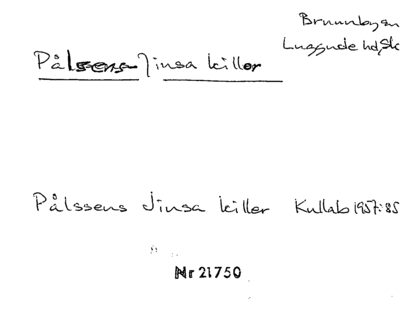 Brunnbyn
Luggude hd, Sk
Pålssens Jinsa killer
Pålssens Jinsa killer Kullab 1957:85
Nr 21750